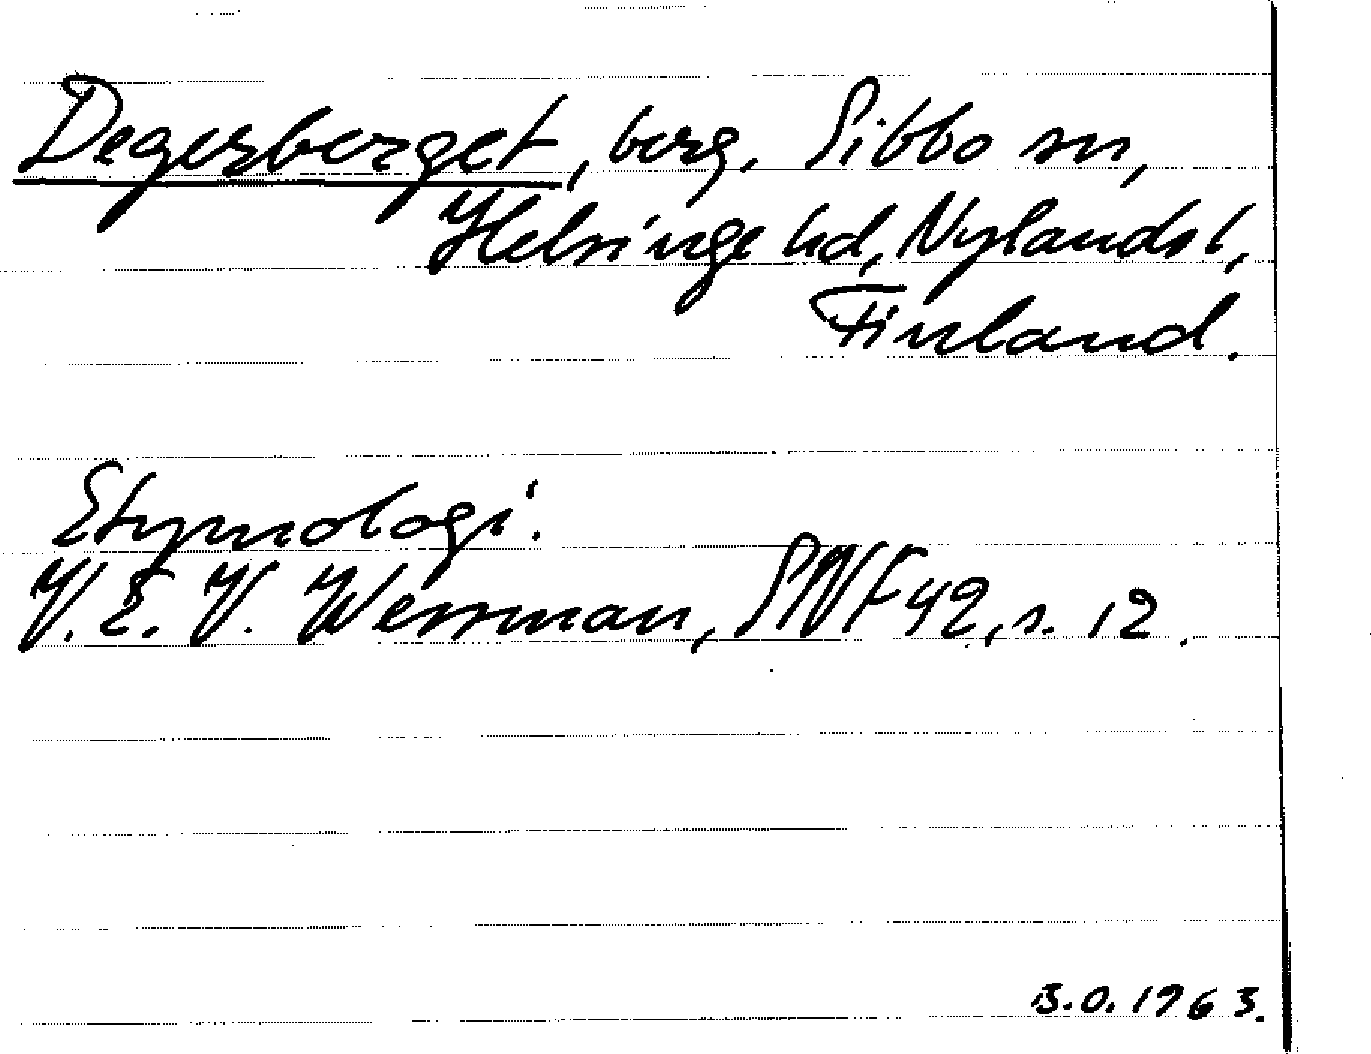 Degerberget, berg, Sibbo sn,
Helsinge hd, Nylands l,
Finland.
Etymologi.
V. E. V. Wessman, SNF 42, s. 12.
B.O. 1963.